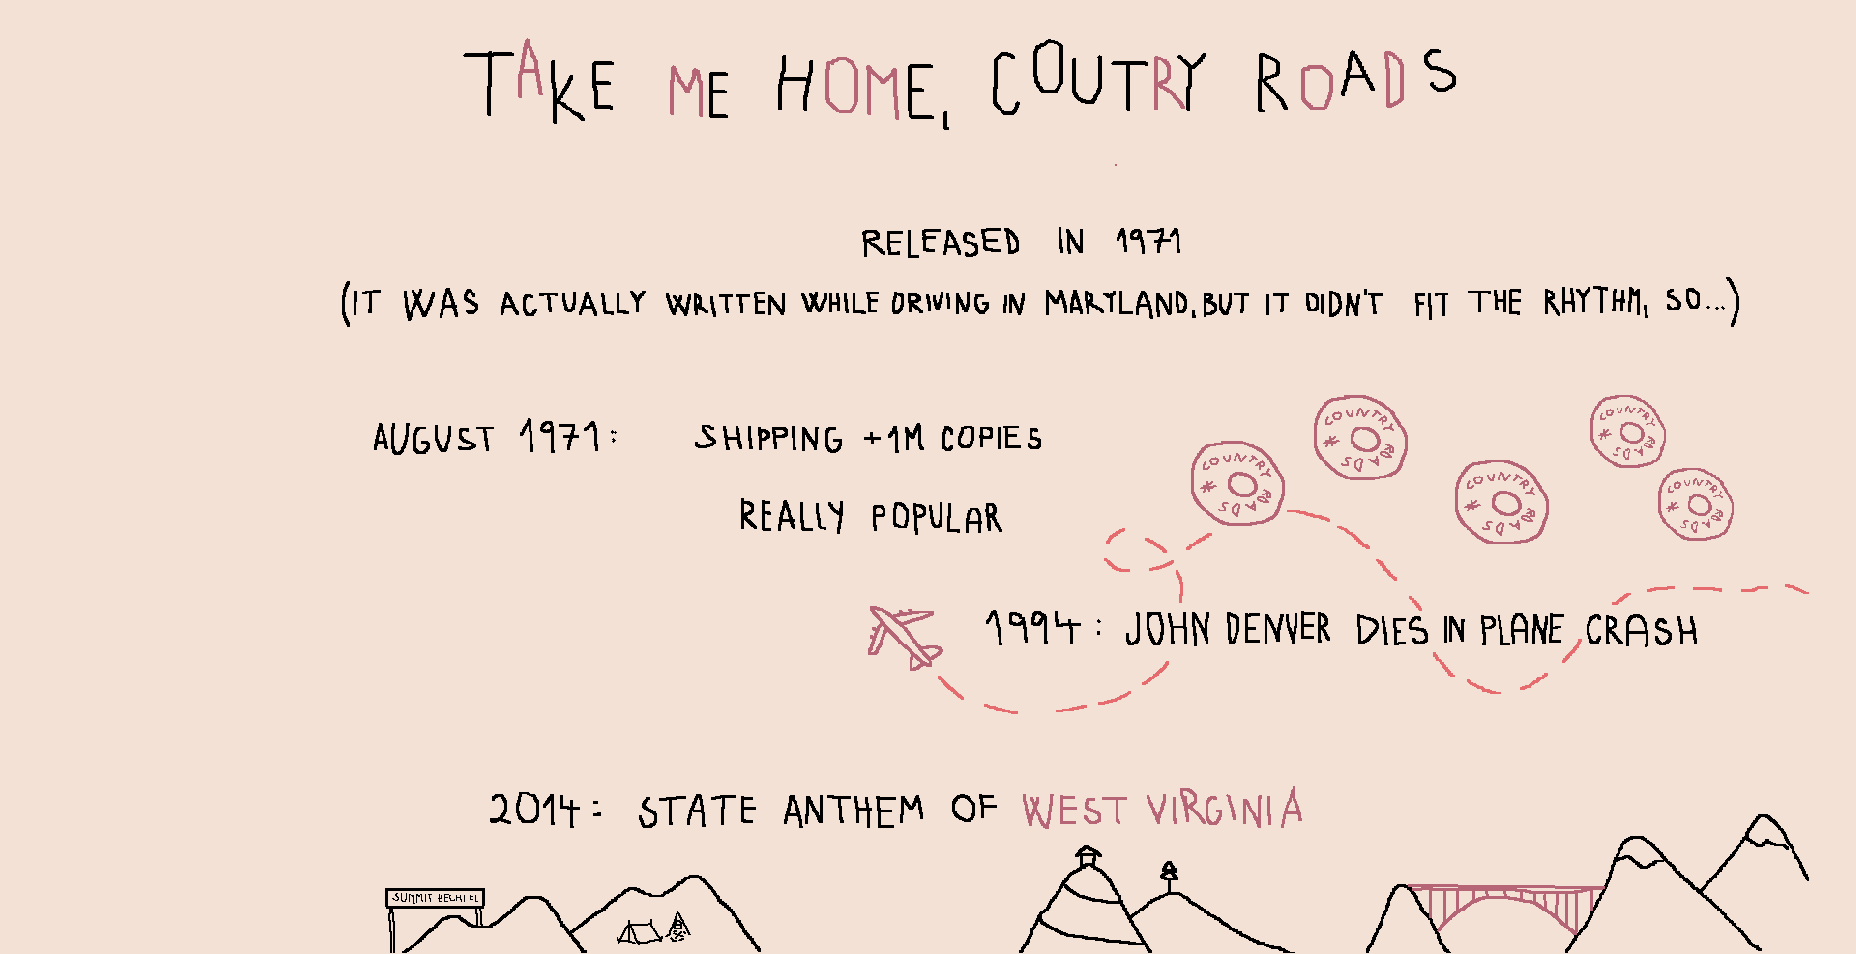 TAKE ME HOME, COUTRY ROADS
RELEASED IN 1971
(IT WAS ACTUALLY WRITTEN WHILE DRIVING IN MARYLAND, BUT IT DIDN'T FIT THE RHYTHM, SO...)
AUGUST 1971: SHIPPING +1M COPIES
REALLY POPULAR
COUNTRY ROADS *
COUNTRY ROADS *
COUNTRY ROADS *
COUNTRY ROADS *
COUNTRY ROADS *
1994: JOHN DENVER DIES IN PLANE CRASH
2014: STATE ANTHEM OF WEST VIRGINIA
SUMMIT